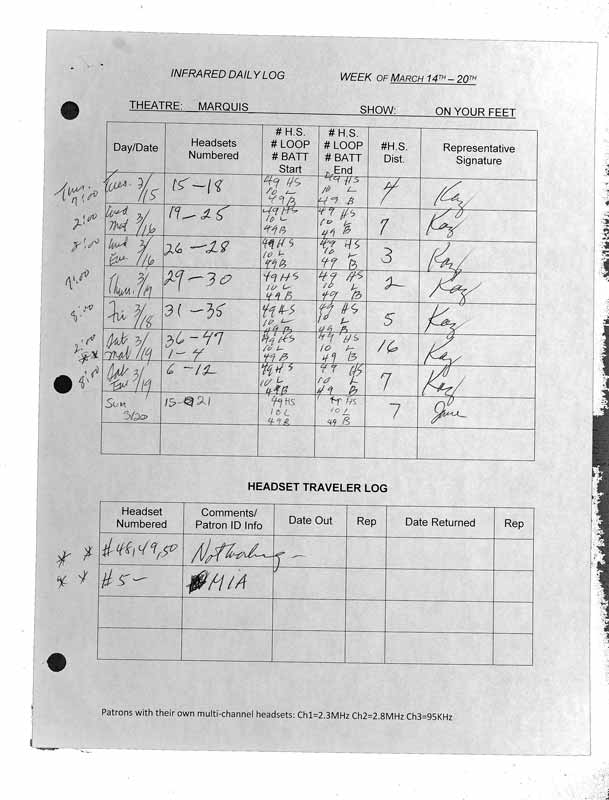 INFRARED DAILY LOG WEEK OF MARCH 14TH – 20TH
THEATRE: MARQUIS SHOW: ON YOUR FEET
Day/Date Headsets Numbered # H.S. # LOOP # BATT Start # H.S. # LOOP # BATT End #H.S. Dist. Representative Signature
7:00 Tues. 3/15 15-18 49 HS 10 L 49 B 49 HS 10 L 49 B 4 Kay
2:00 Wed Mat 3/16 19-25 49 HS 10 L 49 B 49 HS 10 L 49 B 7 Kay
8:00 Wed Eve 3/16 26-28 49 HS 10 L 49 B 49 HS 10 L 49 B 3 Kay
7:00 Thurs. 29-30 49 HS 10 L 49 B 49 HS 10 L 49 B 2 Kay
8:00 Fri 3/18 31-35 49 HS 10 L 49 B 49 HS 10 L 49 B 5 Kay
2:00 ** Sat Mat 3/19 36-47 1-4 49 HS 10 L 49 B 49 HS 10 L 49 B 16 Kay
8:00 Sat Eve 3/19 6-12 49 HS 10 L 49 B 49 HS 10 L 49 B 7 Kay
Sun 3/20 15-21 49 HS 10 L 49 B 49 HS 10 L 49 B 7 June
HEADSET TRAVELER LOG
Headset Numbered Comments/ Patron ID Info Date Out Rep Date Returned Rep
* * #48,49,50 Not working -
* * #5- MIA
Patrons with their own multi-channel headsets: Ch1=2.3MHz Ch2=2.8MHz Ch3=95KHz